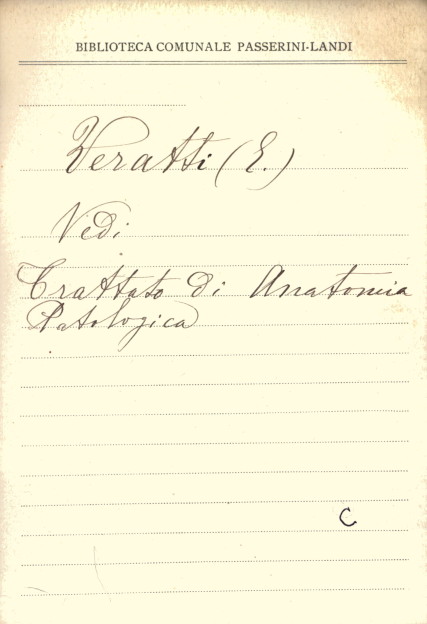 BIBLIOTECA COMUNALE PASSERINI-LANDI
Veratti (E.)
Vedi
Trattato di Anatomia
Patologica
C